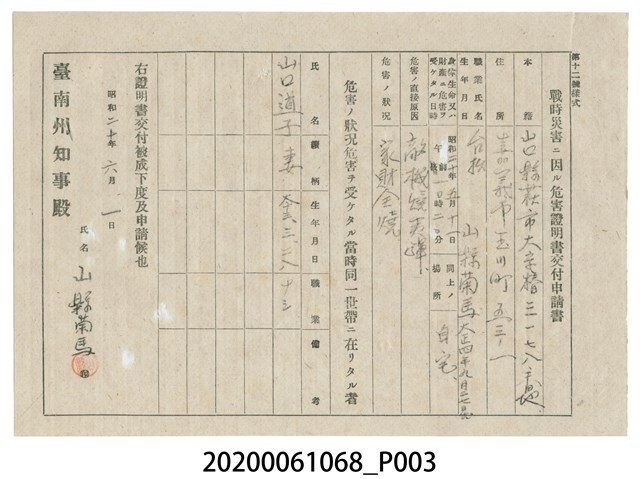 第十二號樣式
戰時災害ニ因ル危害證明書交付申請書
本籍 山口縣萩市大字椿三一七八
住所 嘉義市玉川町五三ノ一
職業氏名 台拓 山縣蘭馬
生年月日 大正四年九月二七日
身体生命又ハ財產ニ危害ヲ受ケタル日時 昭和二十年五月十一日 午前 時二〇分
同上ノ場所 自宅
危害ノ直接原因 敵機燒夷彈
危害ノ狀況 家財全燒
危害ノ狀況危害ヲ受ケタル當時同一世帶ニ在リタル者
氏名 續柄 生年月日 職業 備考
山口道子 妻
右證明書交付被成下度及申請候也
昭和二十年六月一日
氏名 山縣蘭馬
臺南州知事殿
20200061068_P003